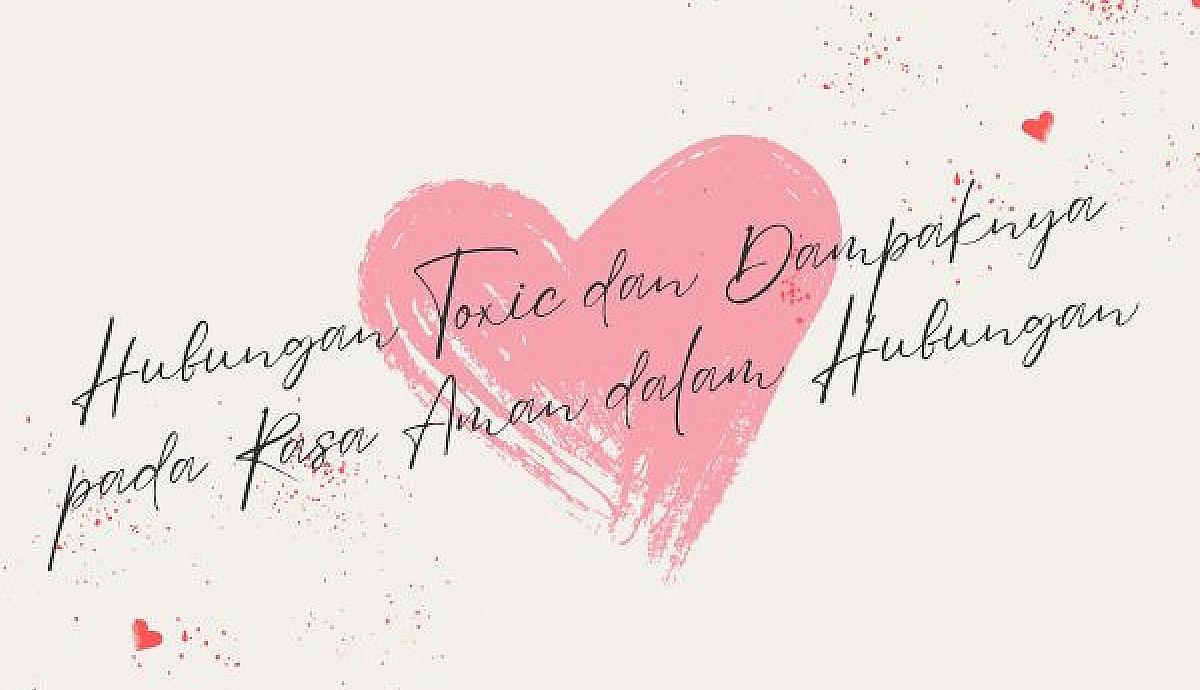 Hubungan Toxic dan Dampaknya
pada Rasa Aman dalam Hubungan